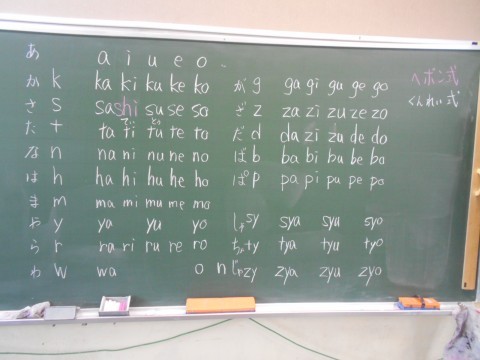 あ a i u e o
か k ka ki ku ke ko が g ga gi gu ge go ヘボン式
さ s sa shi su se so ざ z za zi zu ze zo くんれい式
た t ta ti tu te to だ d da zi zu de do
な n na ni nu ne no ば b ba bi bu be bo
は h ha hi hu he ho ぱ p pa pi pu pe po
ま m ma mi mu me mo
や y ya yu yo しゃ sy sya syu syo
ら r ra ri ru re ro ちゃ ty tya tyu tyo
わ w wa o n じゃ zy zya zyu zyo